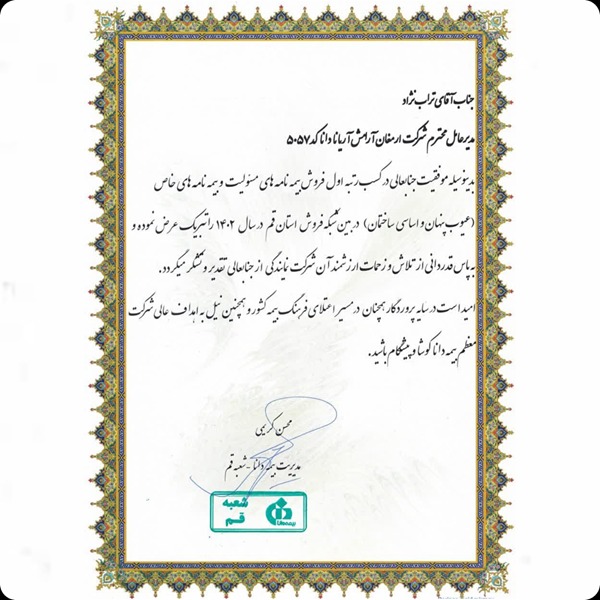 جناب آقای تراب نژاد
مدیرعامل محترم شرکت ارمغان آرامش آریانا دانا کد ۵۰۵۷
بدینوسیله موفقیت جنابعالی در کسب رتبه اول فروش بیمه نامه های مسئولیت و بیمه نامه های خاص
(عیوب پنهان و اساسی ساختمان) در بین شبکه فروش استان قم در سال ۱۴۰۲ را تبریک عرض نموده و
به پاس قدردانی از تلاش و زحمات ارزشمند آن شرکت نمایندگی از جنابعالی تقدیر و تشکر میگردد.
امید است در سایه پروردگار همچنان در مسیر اعتلای فرهنگ بیمه کشور و همچنین نیل به اهداف عالی شرکت
معظم بیمه دانا کوشا و پیشگام باشید.
محسن کریمی
مدیریت بیمه دانا - شعبه قم
بیمه دانا
شعبه
قم